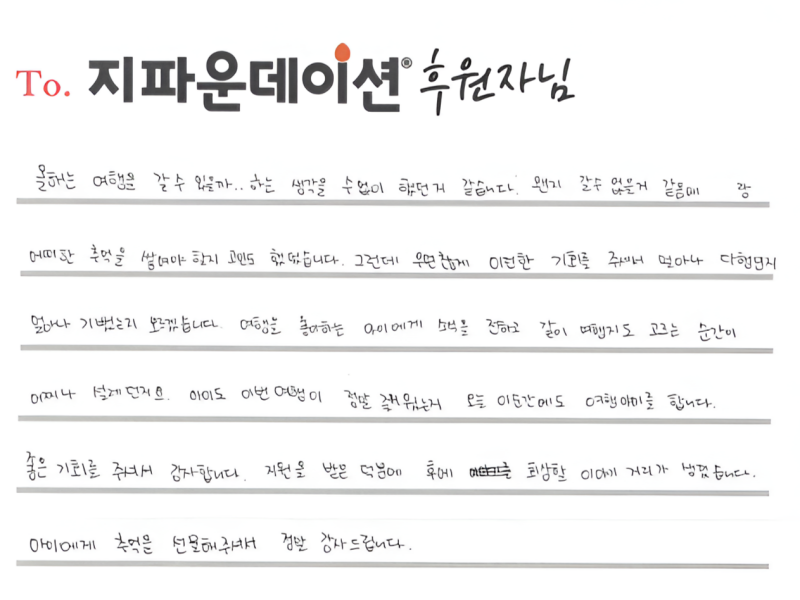 To. 지파운데이션® 후원자님
올해는 여행을 갈 수 있을까.. 하는 생각을 수없이 했던거 같습니다. 왠지 갈수 없을거 같음에 랑
어떠한 추억을 쌓여야 할지 고민도 했었습니다. 그런데 우연찮게 이러한 기회를 주셔서 얼마나 다행인지
얼마나 기뻤는지 모르겠습니다. 여행을 좋아하는 아이에게 소식을 전하고 같이 여행지도 고르는 순간이
어찌나 설레던지요. 아이도 이번 여행이 정말 재밌었는지 오늘 이순간에도 여행이야기를 합니다.
좋은 기회를 주셔서 감사합니다. 지원을 받은 덕분에 후에 회상할 이야기 거리가 생겼습니다.
아이에게 추억을 선물해주셔서 정말 감사드립니다.